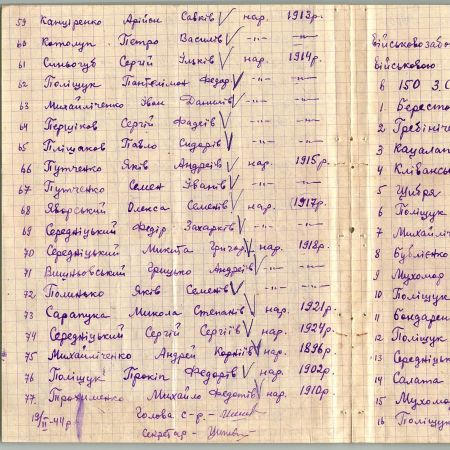 59 Канціренко Арійон Савків нар. 1913р.
60 Котолуп Петро Василів -"- -"-
61 Синьогуб Сергій Ільків нар. 1914р.
62 Поліщук Пантелімон Федор. -"- -"-
63 Михайліченко Іван Данилів -"- -"-
64 Першіков Сергій Фадеїв -"- -"-
65 Плішаков Павло Сидорів -"- -"-
66 Путченко Яків Андреїв нар. 1915р.
67 Путченко Семен Іванів -"- -"-
68 Яворський Олекса Семенів нар. (1917р.
69 Середніцький Федір Захарків -"- -"-
70 Середніцький Микита Григор. нар. 1918р.
71 Вишньовський Грицько Андреїв -"- -"-
72 Полинько Яків Семенів -"- -"-
73 Сарапука Микола Степанів нар. 1921р.
74 Середніцький Сергій Сергіїв нар. 1924р.
75 Михайліченко Андрей Корніїв нар. 1896р.
76 Поліщук Прокіп Федорів нар. 1902р.
77. Трохименко Михайло Федотів нар. 1910р.
19/II-44р. Голова с-р.-
Секретар-
військовозабо
військовою
в 150 З.С
1. Бересто
2 Гребініче
3 Кацалап
4 Кліванс
5 Цибря
6 Поліщук
7 Михайліч
8 Бублієнко
9 Мухомор
10 Поліщук
11 Бондарен
12 Поліщук
13 Середніцьк
14 Салата
15 Мухомо
16 Поліщук